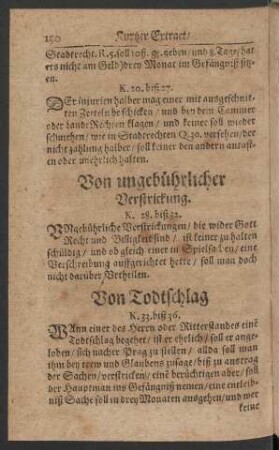 190 Kurtzer Extract/
Stadtrecht. K. 5. soll 10ß. gr. geben/ und 8. Tage/ hat
ers nicht am Geld/ drey Monat im Gefängniß sitz-
en.
K. 20. biß 27.
DEr injurien halber mag einer mit ausgeschnit-
ten Zetteln beschicken/ und bey dem Cammer
oder LandeRechten klagen/ und keiner soll wieder
schmehen/ wie in Stadtrechten Q. 30. versehen/ der
nicht zahlung halber/ soll keiner den andern antast-
en oder unehrlich halten.
Von ungebührlicher
Verstrickung.
K. 28. biß 32.
UNgebührliche Verstrickungen/ die wider Gott
Recht und Billigkeit sind/ ist keiner zu halten
schüldig/ und ob gleich einer in Spielsachen/ eine
Verschreibung auffgerichtet hette/ soll man doch
nicht darüber Urtheilen.
Von Todtschlag
K. 33. biß 36.
WAnn einer des Herrn oder Ritterstandes einē
Todtschlag begehet/ ist er ehrlich/ soll er ange-
loben/ sich nacher Prag zu stellen/ allda soll man
ihm bey trew und Glaubens zusage/ biß zu austrag
der Sachen/ verstricken/ eine berüchtigen aber/ soll
der Hauptman ins Gefängniß nemen/ eine entleib-
niß Sache soll in drey Monaten ausgehen/ und wer
keine